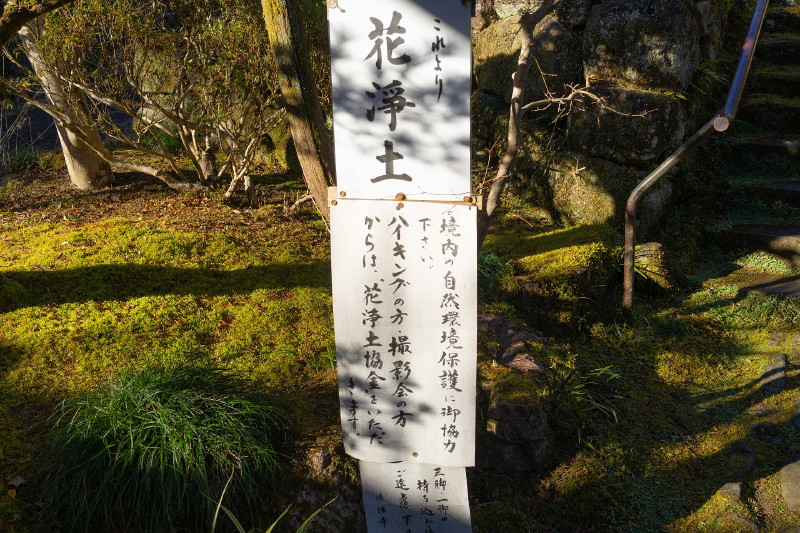 これより
花浄土
境内の自然環境保護に御協力
下さい。
ハイキングの方・撮影会の方
からは、花浄土協金をいただ
きます。
三脚・一脚の
持ち込み
ご遠慮下